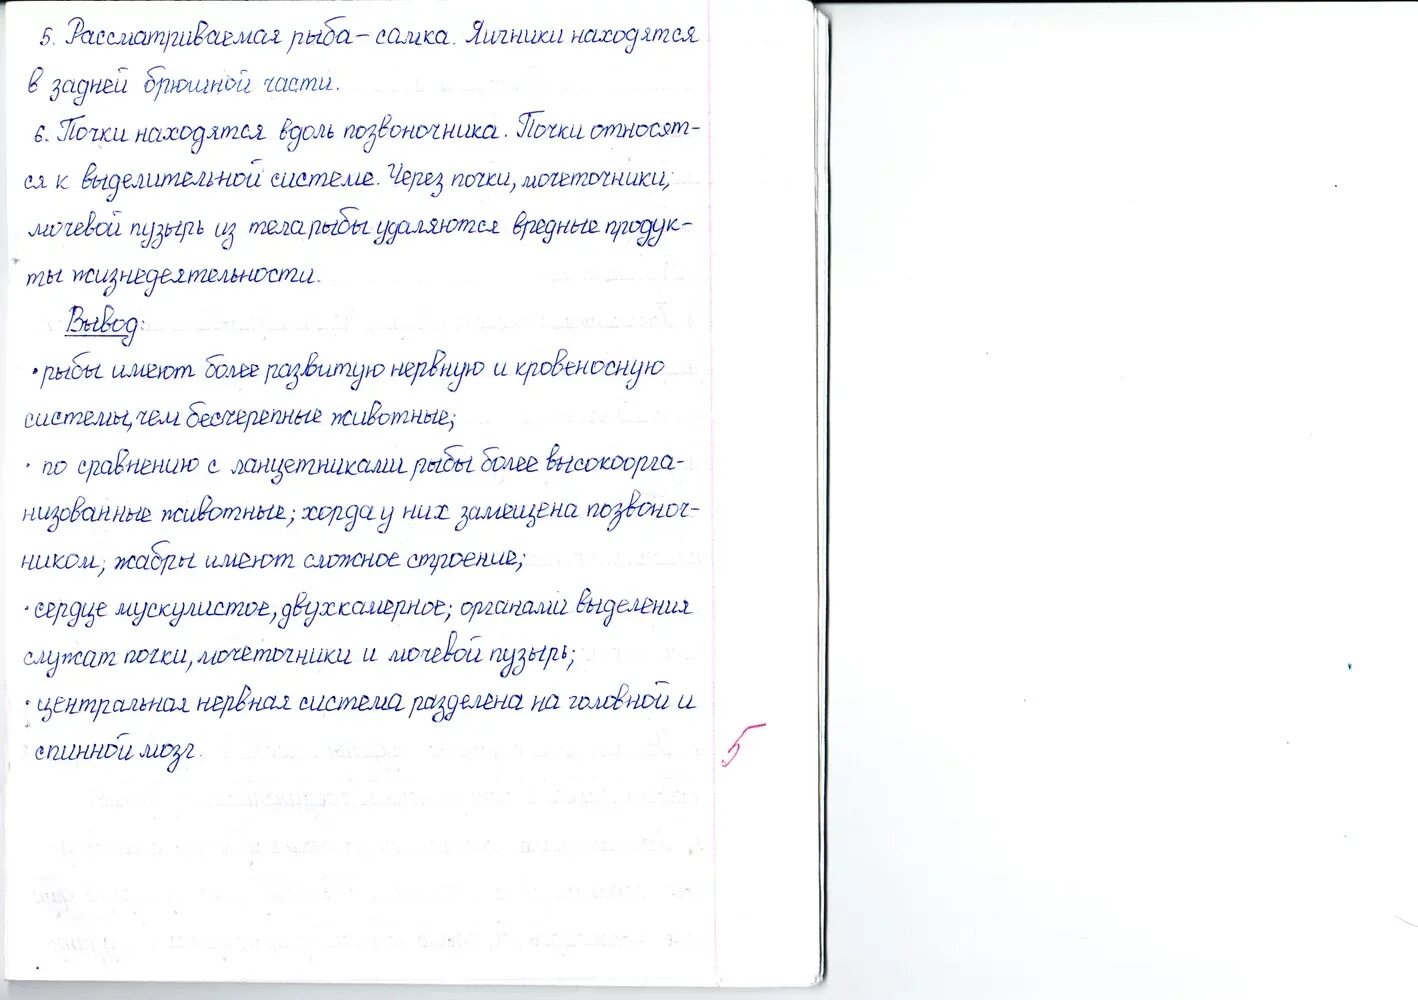 5. Рассматриваемая рыба – самка. Яичники находятся
в задней брюшной части.
6. Почки находятся вдоль позвоночника. Почки относят-
ся к выделительной системе. Через почки, мочеточники,
мочевой пузырь из тела рыбы удаляются вредные продук-
ты жизнедеятельности.
Вывод:
• рыбы имеют более развитую нервную и кровеносную
системы, чем бесчерепные животные;
• по сравнению с ланцетниками рыбы более высокоорга-
низованные животные; хорда у них замещена позвоноч-
ником; жабры имеют сложное строение;
• сердце мускулистое, двухкамерное; органами выделения
служат почки, мочеточники и мочевой пузырь;
• центральная нервная система разделена на головной и
спинной мозг.
5